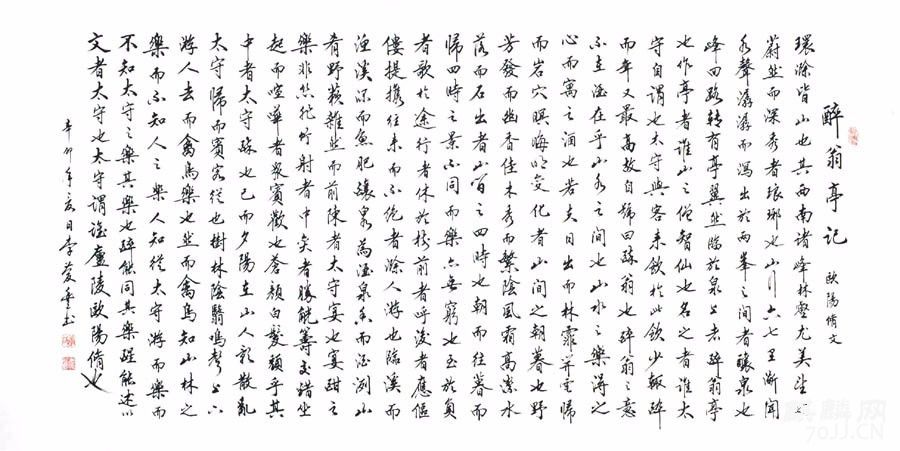 醉翁亭记
歐陽脩文
環滁皆山也其西南諸峰林壑尤美望之
蔚然而深秀者琅琊也山行六七里漸聞
水聲潺潺而瀉出於兩峯之間者釀泉也
峰回路轉有亭翼然臨於泉上者醉翁亭
也作亭者誰山之僧智仙也名之者誰太
守自謂也太守與客来飲於此飲少輒醉
而年又最高故自號曰醉翁也醉翁之意
不在酒在乎山水之間也山水之樂得之
心而寓之酒也若夫日出而林霏开雲歸
而岩穴暝晦明變化者山間之朝暮也野
芳發而幽香佳木秀而繁陰風霜高潔水
落而石出者山間之四時也朝而往暮而
歸四時之景不同而樂亦無窮也至於負
者歌於途行者休於樹前者呼後者應傴
僂提攜往来而不絶者滁人游也臨溪而
漁溪深而魚肥釀泉為酒泉香而酒洌山
肴野蔌雜然而前陳者太守宴也宴酣之
樂非絲非竹射者中奕者勝觥籌交錯坐
起而喧嘩者衆賓歡也蒼顔白髮頹乎其
中者太守醉也已而夕陽在山人影散亂
太守歸而賓客從也樹林陰翳鳴聲上下
游人去而禽鳥樂也然而禽鳥知山林之
樂而不知人之樂人知從太守游而樂而
不知太守之樂其樂也醉能同其樂醒能述以
文者太守也太守謂誰廬陵歐陽脩也
辛卯年亥月李
麒麟网
70JJ.CN